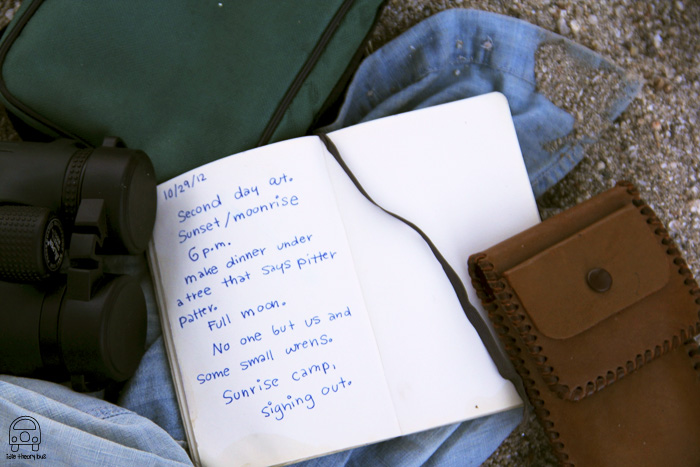 10/29/12
Second day out.
Sunset/moonrise
6 p.m.
make dinner under
a tree that says pitter
patter.
Full moon.
No one but us and
some small wrens.
Sunrise camp,
signing out.
idle theory bus